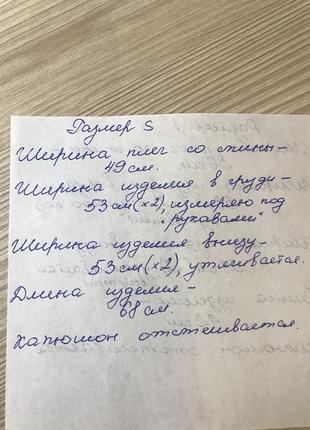 Размер S
Ширина плеч со спины-
49 см.
Ширина изделия в груди-
53 см (×2), измеряю под
„рукавами"
Ширина изделия внизу-
53 см (×2), утягивается.
Длина изделия-
68 см.
Капюшон отстегивается.